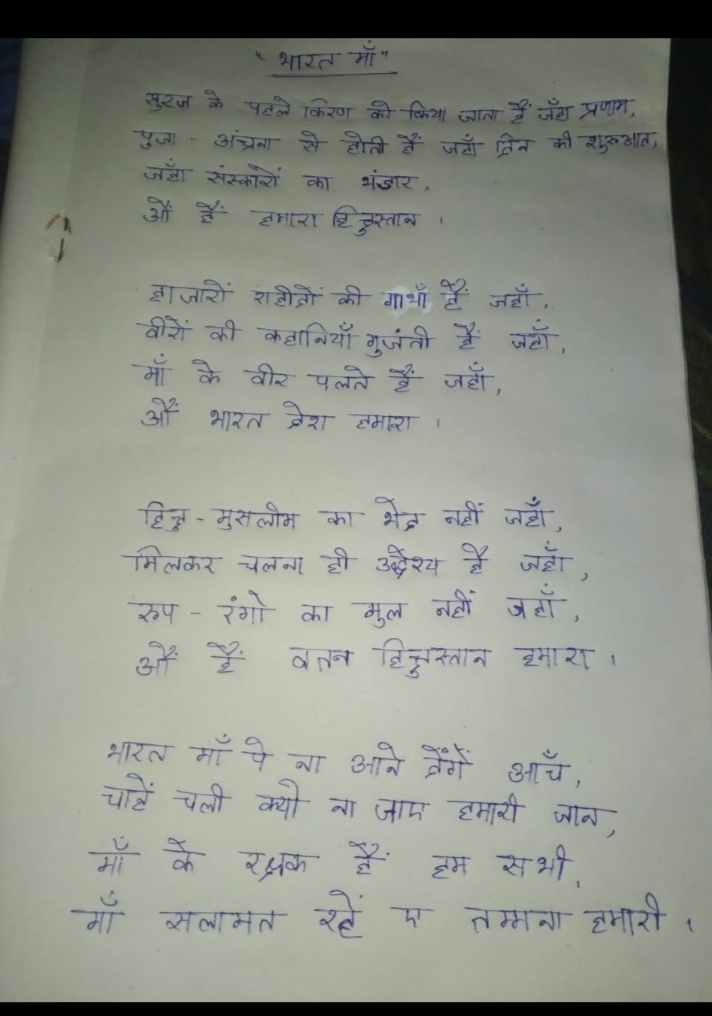 "भारत माँ"
सुरज के पहले किरण को किया जाता हैं जँहा प्रणाम,
पुजा - अंचना से होती हैं जहाँ दिन की शुरूआत,
जहाँ संस्कारों का भंडार,
औं हैं हमारा हिन्दुस्तान ।
हाजारों शहीदों की गाथाँ हैं जहाँ,
वीरों की कहानियाँ गुजंती हैं जहाँ,
माँ के वीर पलते हैं जहाँ,
औं भारत देश हमारा ।
हिन्दु - मुसलीम का भेद नहीं जहाँ,
मिलकर चलना ही उद्धेश्य है जहाँ,
रुप - रंगो का मुल नहीं जहाँ,
औं हैं वतन हिन्दुस्तान हमारा ।
भारत माँ पे ना आने देंगें आँच,
चाहें चली क्यो ना जाए हमारी जान,
माँ के रक्षक हैं हम सभी,
माँ सलामत रहें ए तम्मना हमारी ।